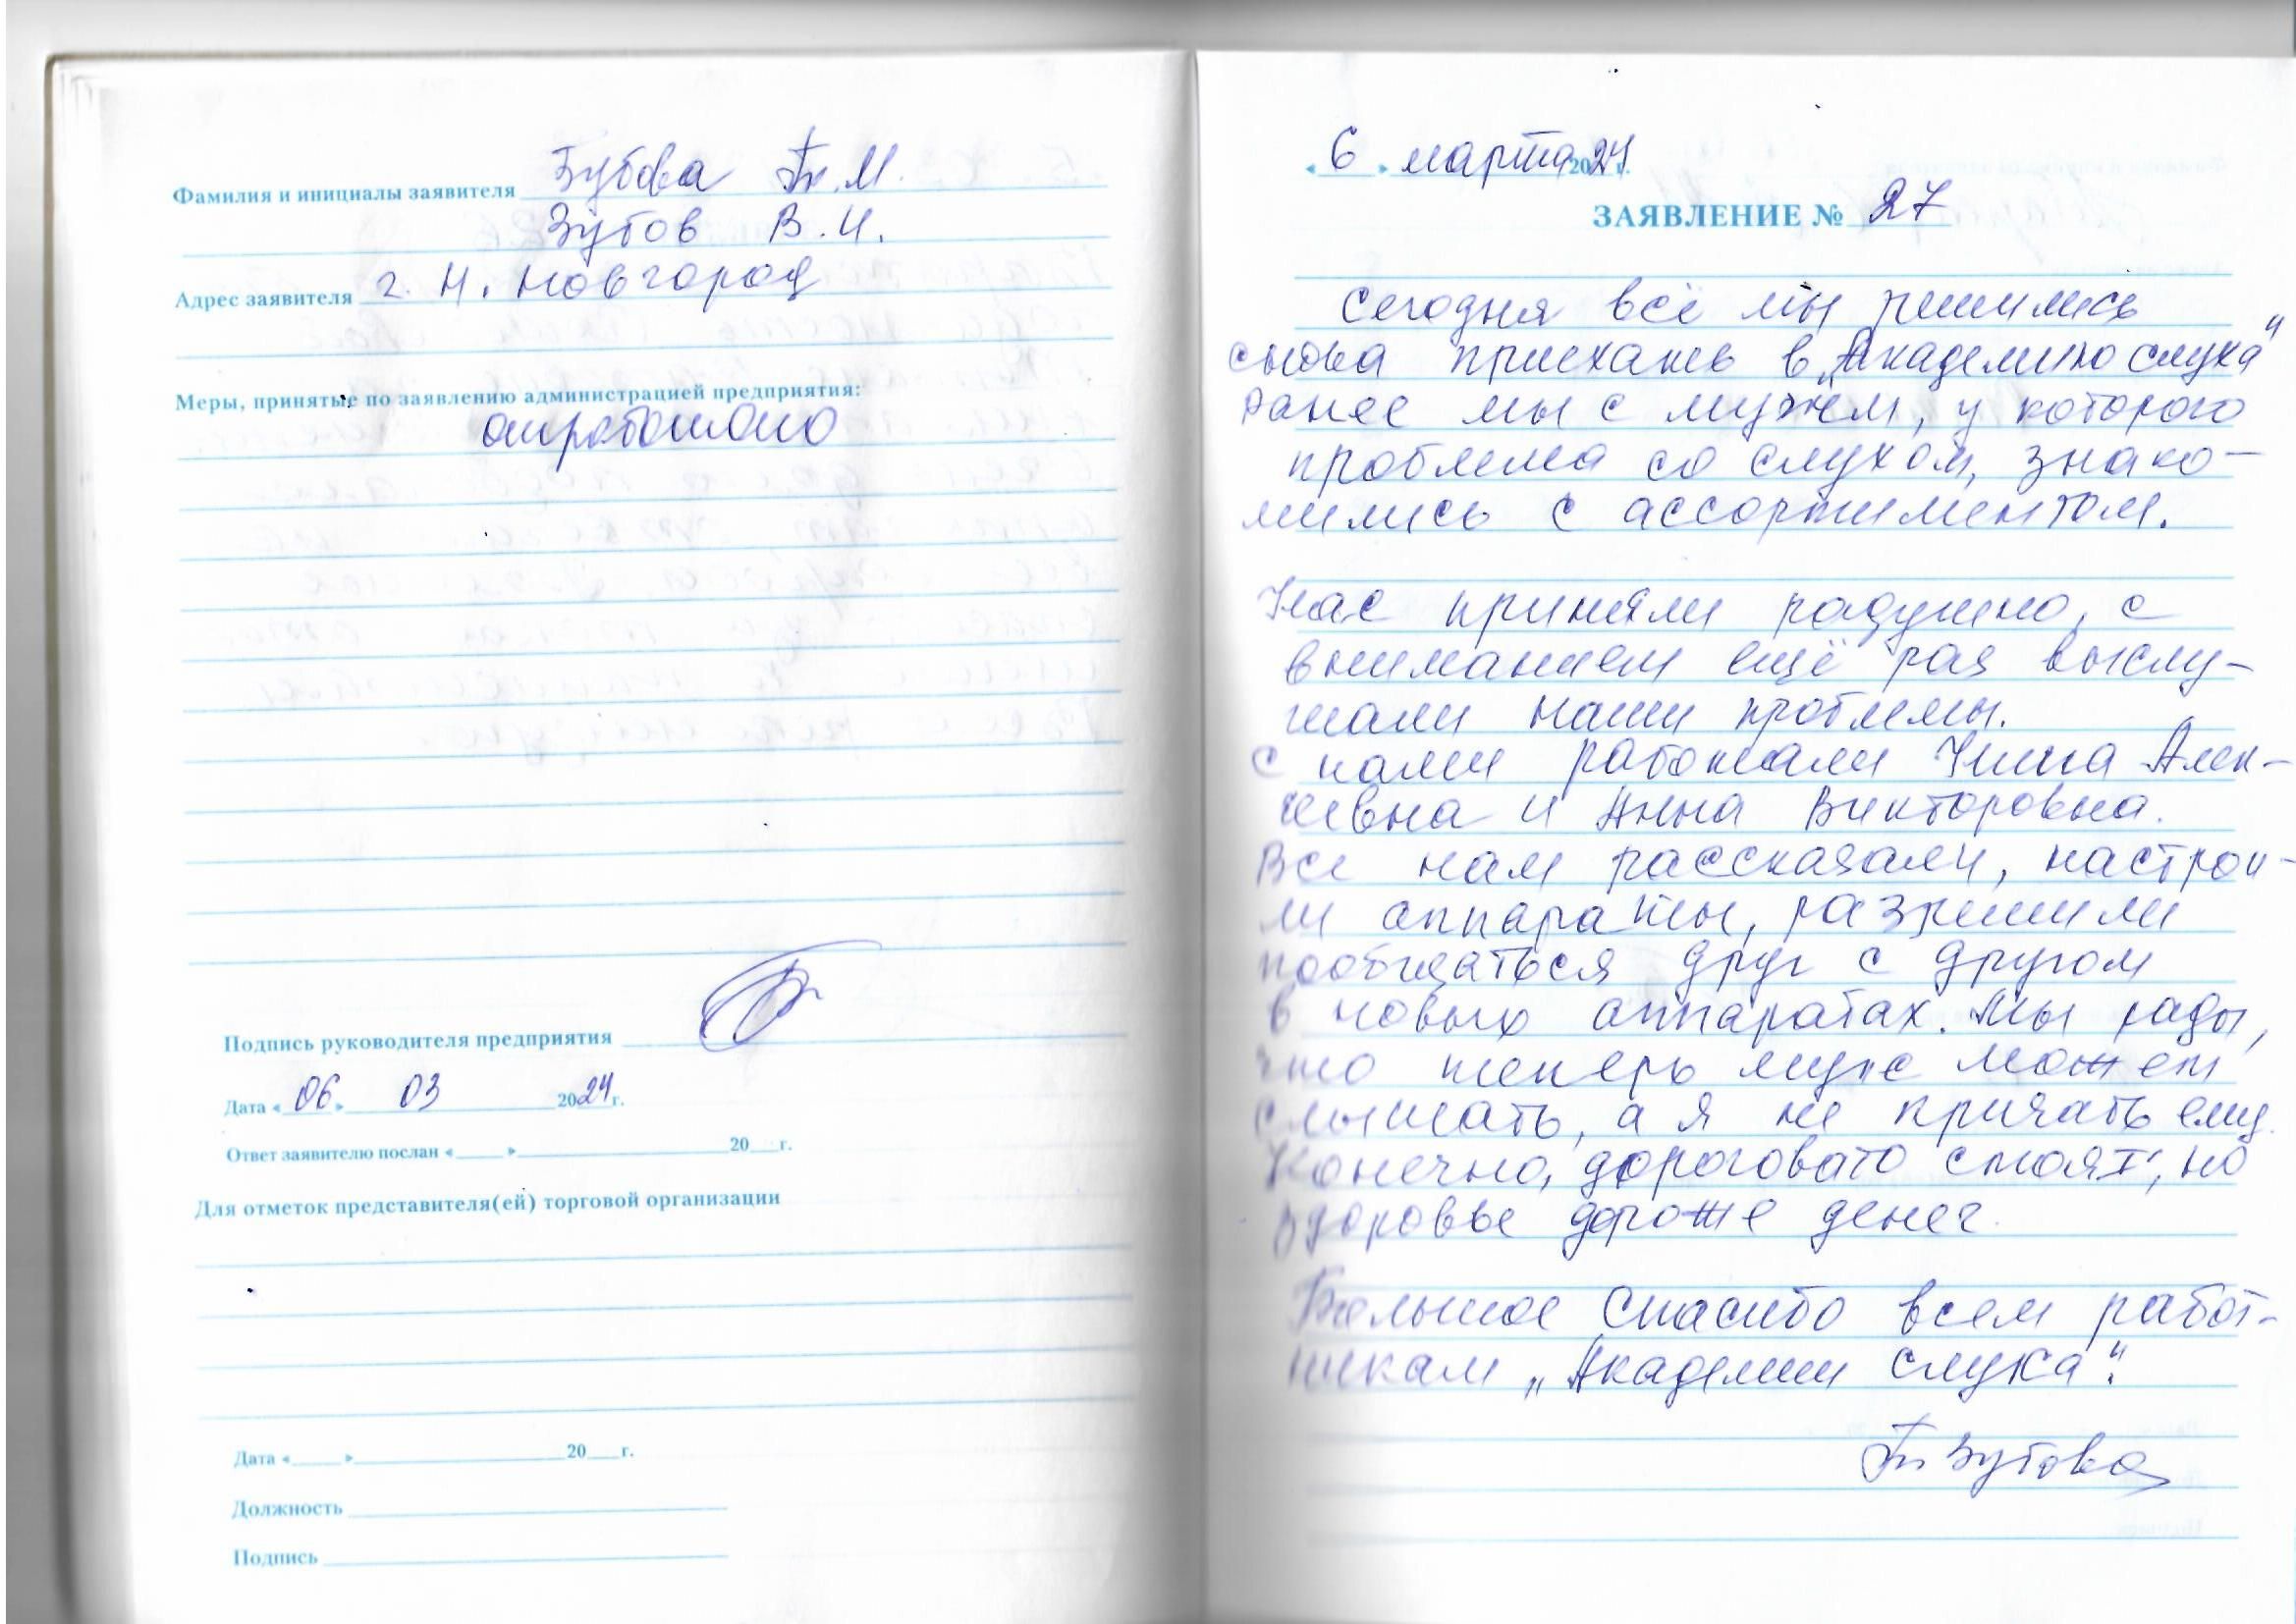 Фамилия и инициалы заявителя Зубова Т. М.
Зубов В. И.
Адрес заявителя г. Н. Новгород
Меры, принятые по заявлению администрацией предприятия:
отработано
Подпись руководителя предприятия
Дата «06» 03 2024 г.
Ответ заявителю послан «___» 20__ г.
Для отметок представителя(ей) торговой организации
Дата «___» 20__ г.
Должность
Подпись
«6» марта 2024 г.
ЗАЯВЛЕНИЕ № 27
Сегодня всё мы решились
снова приехать в „Академию слуха"
Ранее мы с мужем, у которого
проблема со слухом, знако-
мились с ассортиментом.
Нас приняли радушно, с
вниманием ещё раз выслу-
шали наши проблемы.
С нами работали Нина Алек-
еевна и Анна Викторовна.
Все нам рассказали, настрои-
ли аппараты, разрешили
пообщаться друг с другом
в новых аппаратах. Мы рады,
что теперь муж может
слышать, а я не кричать ему.
Конечно, дороговато стоят, но
здоровье дороже денег.
Большое спасибо всем работ-
никам „Академии слуха".
Зубова